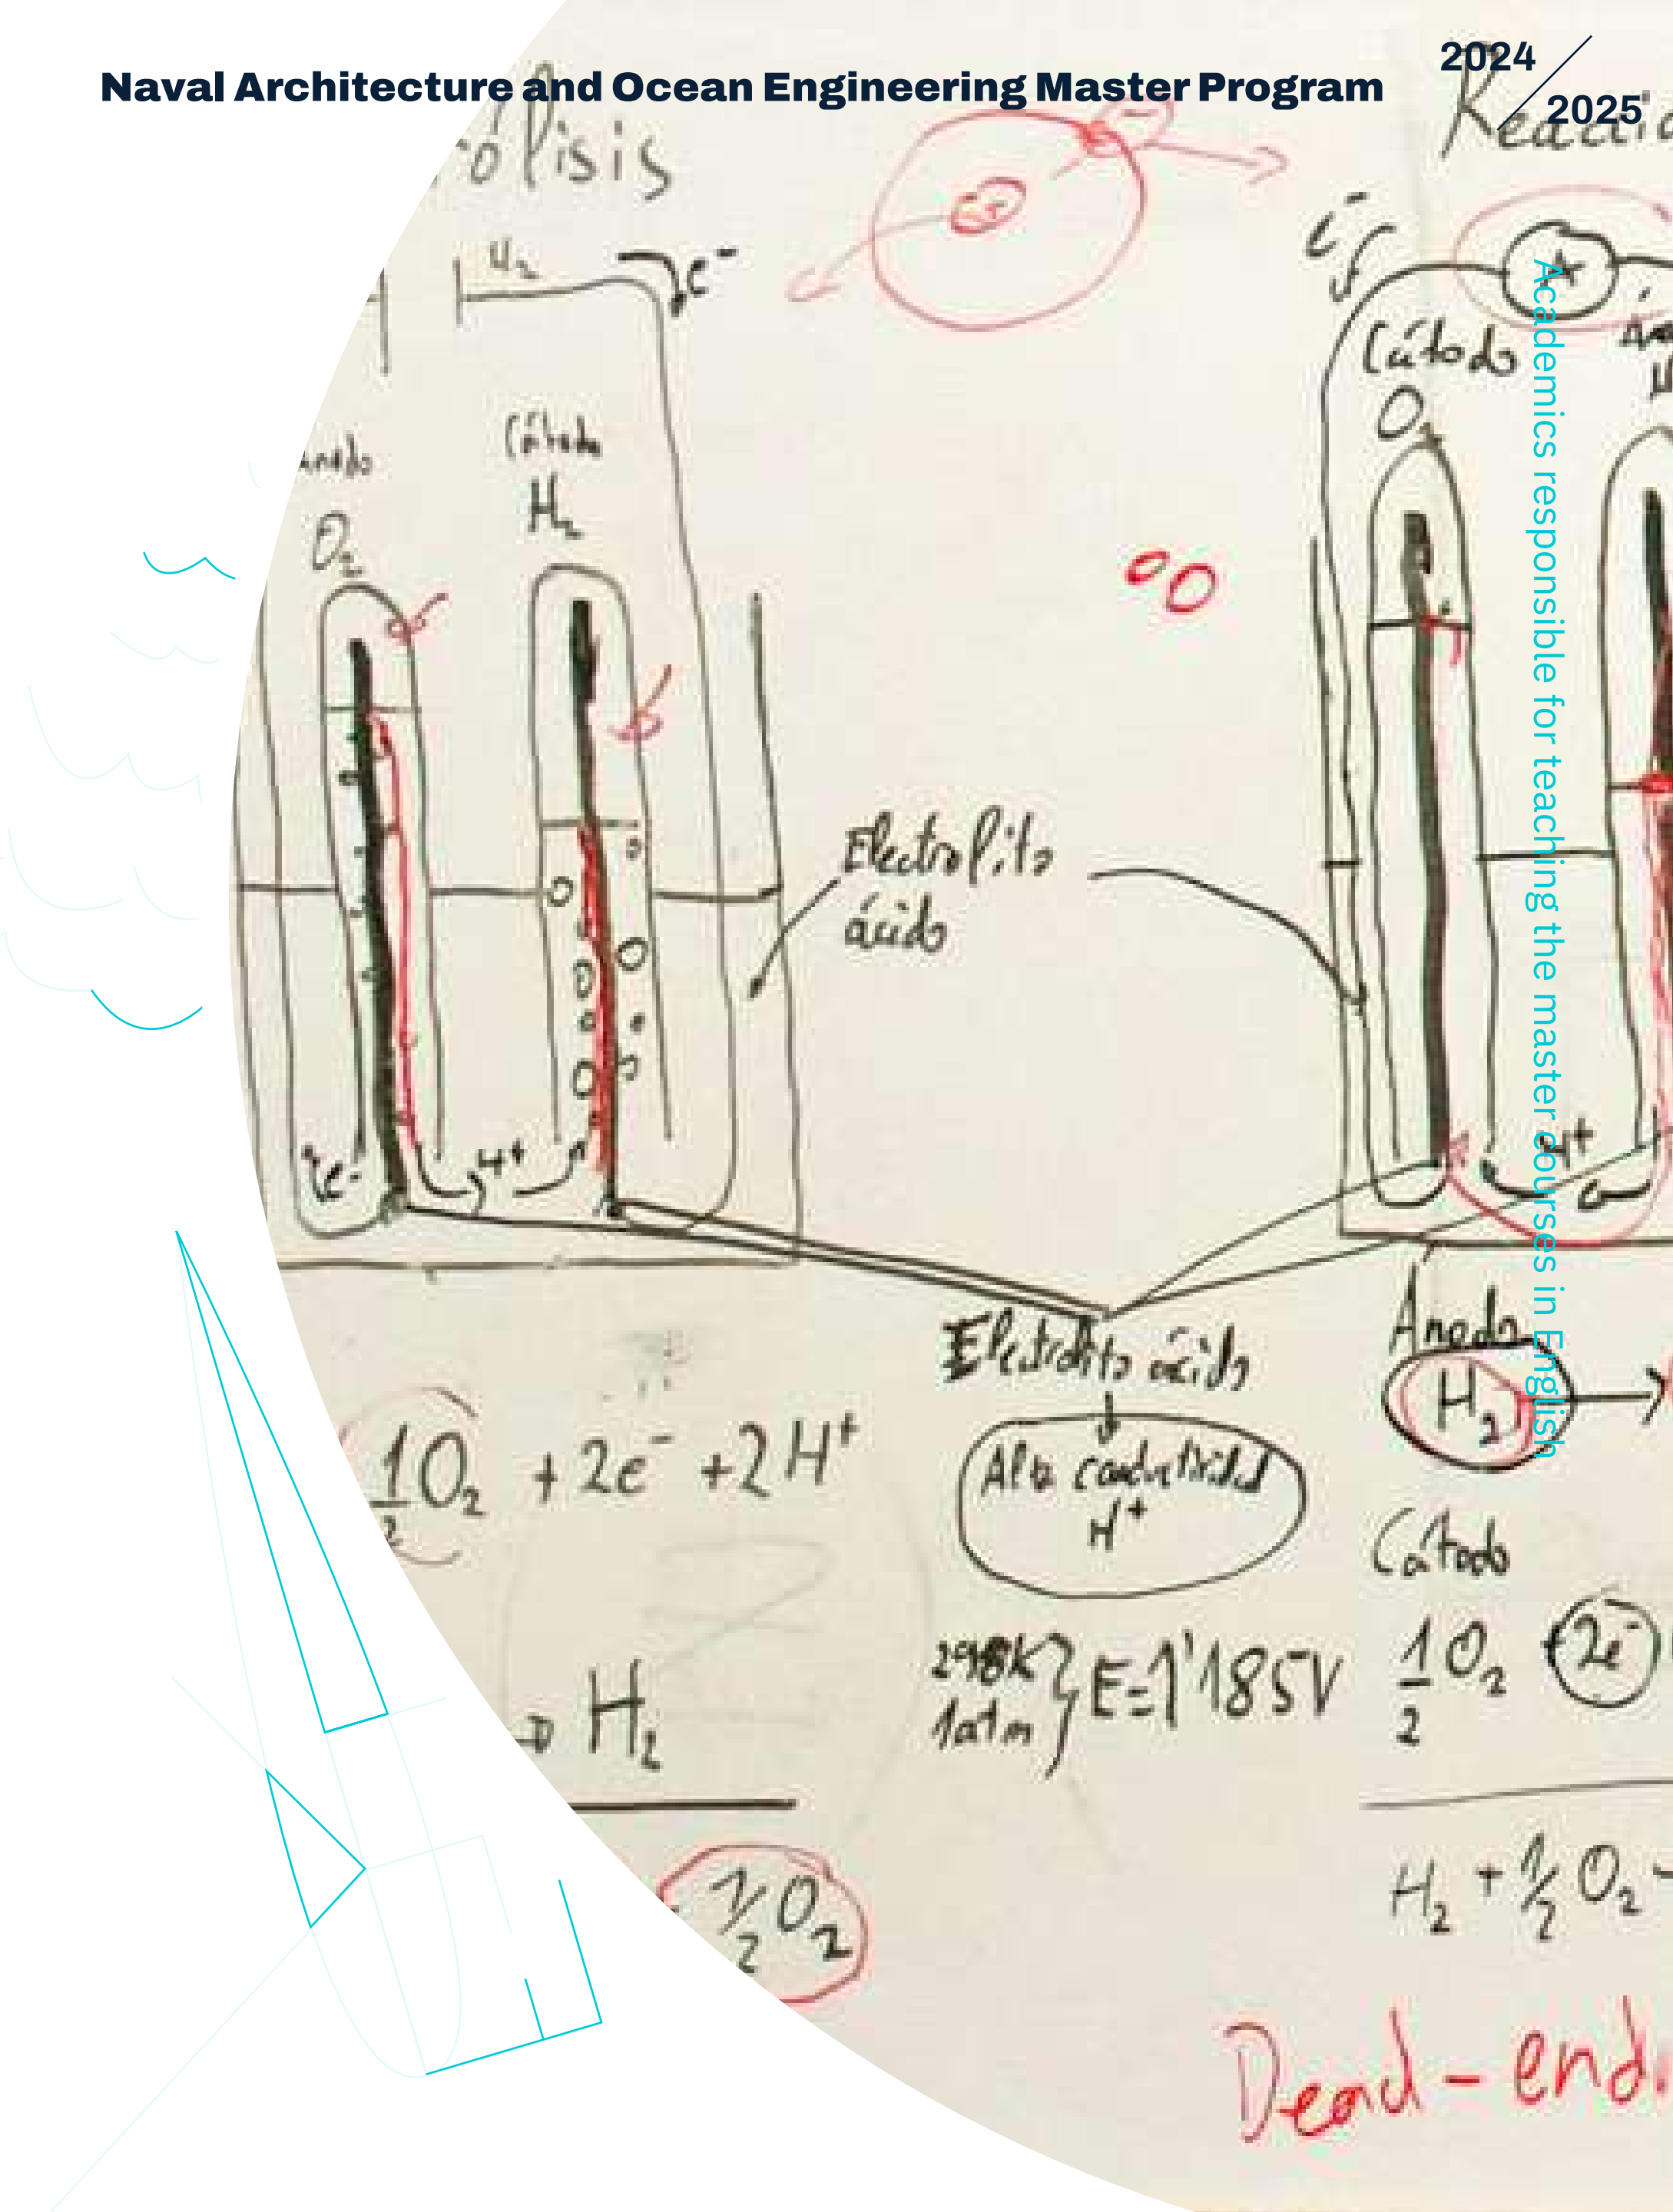 Naval Architecture and Ocean Engineering Master Program
2024
2025
Academics responsible for teaching the master courses in English
ólisis
H₂
e⁻
Cátodo
H₂
O₂
Cátodo
O₂
Electrolito
ácido
H⁺
H⁺
Electrolito ácido
Alta conductividad
H⁺
½O₂ + 2e⁻ + 2H⁺
H₂
298K
1atm
E=1'185V
½O₂
Anodo
H₂ →
Cátodo
½O₂ +2e⁻
H₂ + ½O₂
Dead-end